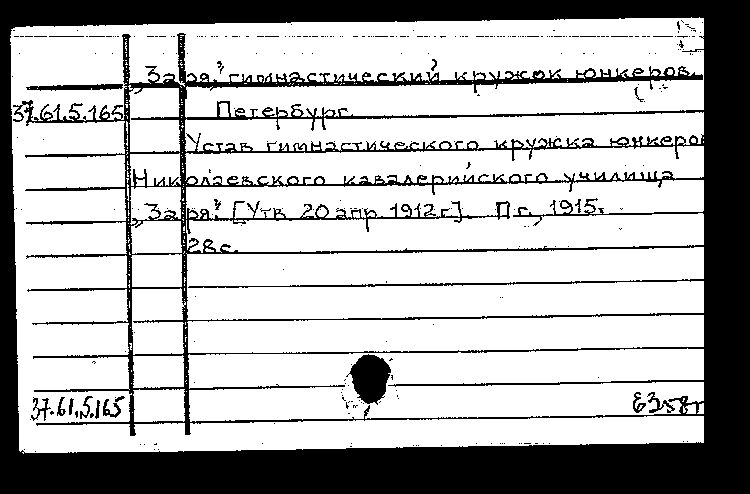 „Заря," гимнастический кружок юнкеров.
37.61.5.165 Петербург.
Устав гимнастического кружка юнкеров
Николаевского кавалерийского училища
„Заря." [Утв. 20 апр. 1912 г.]. Пг., 1915.
28 с.
37.61.5.165